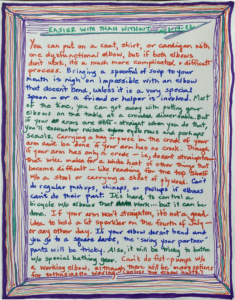 EASIER WITH THAN WITHOUT
You can put on a coat, shirt, or cardigan with
one dysfunctional elbow, but if both elbows
don't work, it's a much more complicated & difficult
process. Bringing a spoonful of soup to your
mouth is nigh on impossible with an elbow
that doesn't bend, unless it is a very special
spoon - or a friend or helper is involved. Most
of the time, you can get away with putting your
elbows on the table at a crowded dinner-table. But
if your arms are stiff-straight when you do that,
you'll encounter raised eyebrows and perhaps
scowls. Carrying a bag in the crook of your
arm can't be done if your arm has no crook. Though
if your arm has only a crook - i.e., doesn't straighten
that will make for a whole host of other things that
become difficult - like reaching for the top shelf
w/o a stool or carrying a sheet of plywood. Can't do
regular pushups, chinups, or pullups if elbows
can't do their part. It's hard to control a
bicycle w/o elbows that work - but it can be
done. If your arm won't straighten, it's not a good
idea to hold a lit sparkler on the Fourth of July -
or any other day. If your elbow doesn't bend and
you go to a square dance, the swing your partner
parts will be tricky. Also, it will be tricky to bathe
w/o special bathing gear. Can't do put-pumps w/o
a working elbow, although there will be many options
for enthusiastic